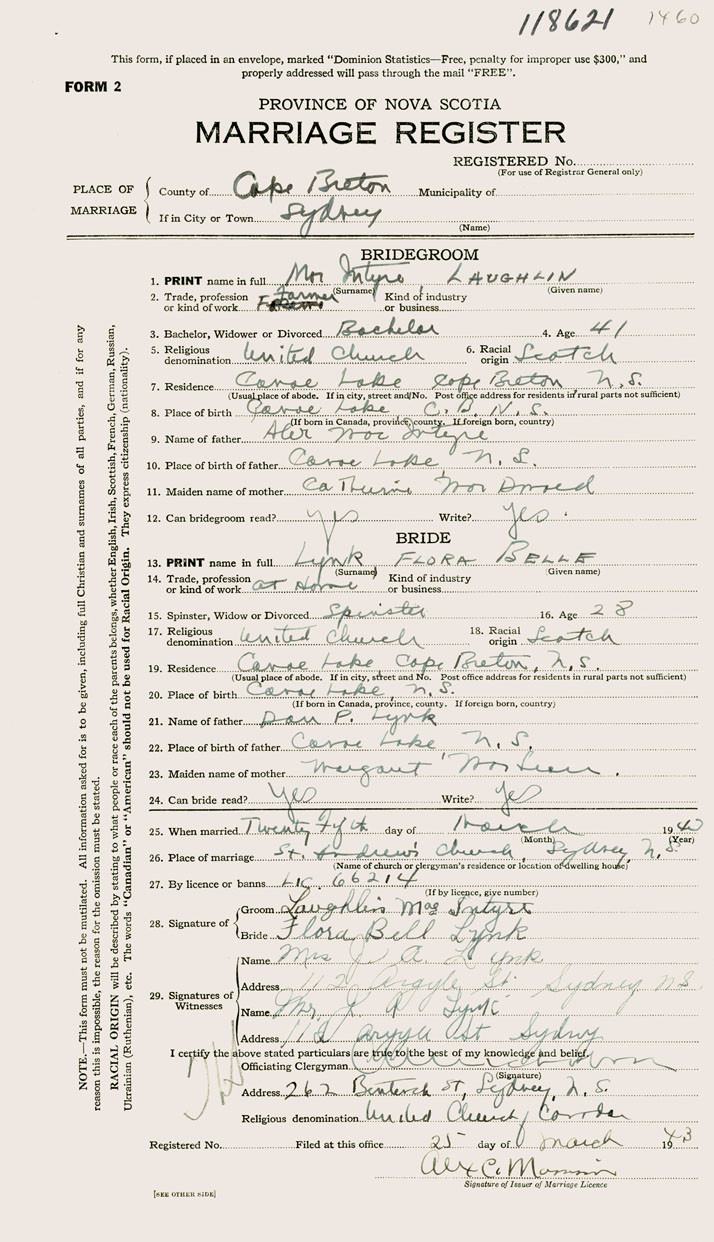 118621 1460
This form, if placed in an envelope, marked "Dominion Statistics—Free, penalty for improper use $300," and
properly addressed will pass through the mail "FREE".
FORM 2
PROVINCE OF NOVA SCOTIA
MARRIAGE REGISTER
REGISTERED No.
(For use of Registrar General only)
PLACE OF MARRIAGE
County of Cape Breton Municipality of
If in City or Town Sydney
(Name)
BRIDEGROOM
1. PRINT name in full Mac Intyre LAUGHLIN
(Surname) (Given name)
2. Trade, profession or kind of work Farmer Kind of industry or business
3. Bachelor, Widower or Divorced Bachelor 4. Age 41
5. Religious denomination United Church 6. Racial origin Scotch
7. Residence Canoe Lake Cape Breton N.S.
(Usual place of abode. If in city, street and No. Post office address for residents in rural parts not sufficient)
8. Place of birth Canoe Lake C.B. N.S.
(If born in Canada, province, county. If foreign born, country)
9. Name of father Alex Mac Intyre
10. Place of birth of father Canoe Lake N.S.
11. Maiden name of mother Catherine Mac
12. Can bridegroom read? Yes Write? Yes.
BRIDE
13. PRINT name in full Lynk FLORA BELLE
(Surname) (Given name)
14. Trade, profession or kind of work at Home Kind of industry or business
15. Spinster, Widow or Divorced Spinster 16. Age 28
17. Religious denomination United Church 18. Racial origin Scotch
19. Residence Canoe Lake Cape Breton, N.S.
(Usual place of abode. If in city, street and No. Post office address for residents in rural parts not sufficient)
20. Place of birth Canoe Lake, N.S.
(If born in Canada, province, county. If foreign born, country)
21. Name of father Dan P. Lynk
22. Place of birth of father Canoe Lake N.S.
23. Maiden name of mother Margaret MacLean.
24. Can bride read? Yes Write? Yes
25. When married Twenty Fifth day of March 19
(Month) (Year)
26. Place of marriage St. Andrew's Church, Sydney, N.S.
(Name of church or clergyman's residence or location of dwelling house)
27. By licence or banns LIC. 66214
(If by licence, give number)
28. Signature of
Groom Laughlin MacIntyre
Bride Flora Bell Lynk
29. Signatures of Witnesses
Name Mrs A. Lynk
Address 112 Argyle St. Sydney NS
Name Mr. Lynk
Address 112 Argyle St Sydney
I certify the above stated particulars are true to the best of my knowledge and belief.
Officiating Clergyman
(Signature)
Address 262 Bentinck St, Sydney, N.S.
Religious denomination United Church, Canada
Registered No. Filed at this office 25 day of March 1943
Alex C.
Signature of Issuer of Marriage Licence
[SEE OTHER SIDE]
NOTE.—This form must not be mutilated. All information asked for is to be given, including full Christian and surnames of all parties, and if for any
reason this is impossible, the reason for the omission must be stated.
RACIAL ORIGIN will be described by stating to what people or race each of the parents belongs, whether English, Irish, Scottish, French, German, Russian,
Ukrainian (Ruthenian), etc. The words "Canadian" or "American" should not be used for Racial Origin. They express citizenship (nationality).